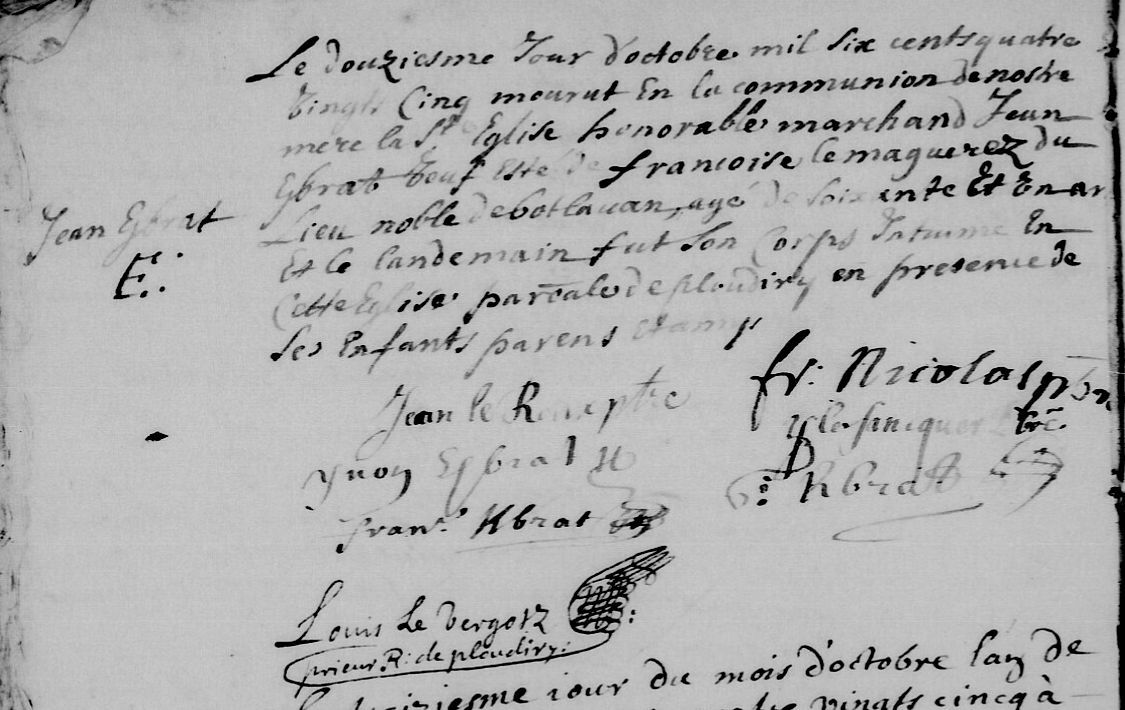 Le douziesme Jour d'octobre mil six cents quatre
Vingts Cinq mourut En la communion de nostre
mere la Ste Eglise honorable marchand Jean
Ebrat Veuf de francoise le maguerez du
Lieu noble de botlavan, agé de soixente Et Un an
Et le landemain fut son Corps Intume En
Cette Eglise paroale de ploudiry en presence de
Ses Enfants parens et amys
Jean Ebrat
E.
Jean le
fr. Nicolas
pbre.
yvon Ebrat
Kbrat
fran. Kbrat
Louis Le Vergoz
prieur R: de ploudiry:
iour du mois d'octobre lan de
vingts cincq à